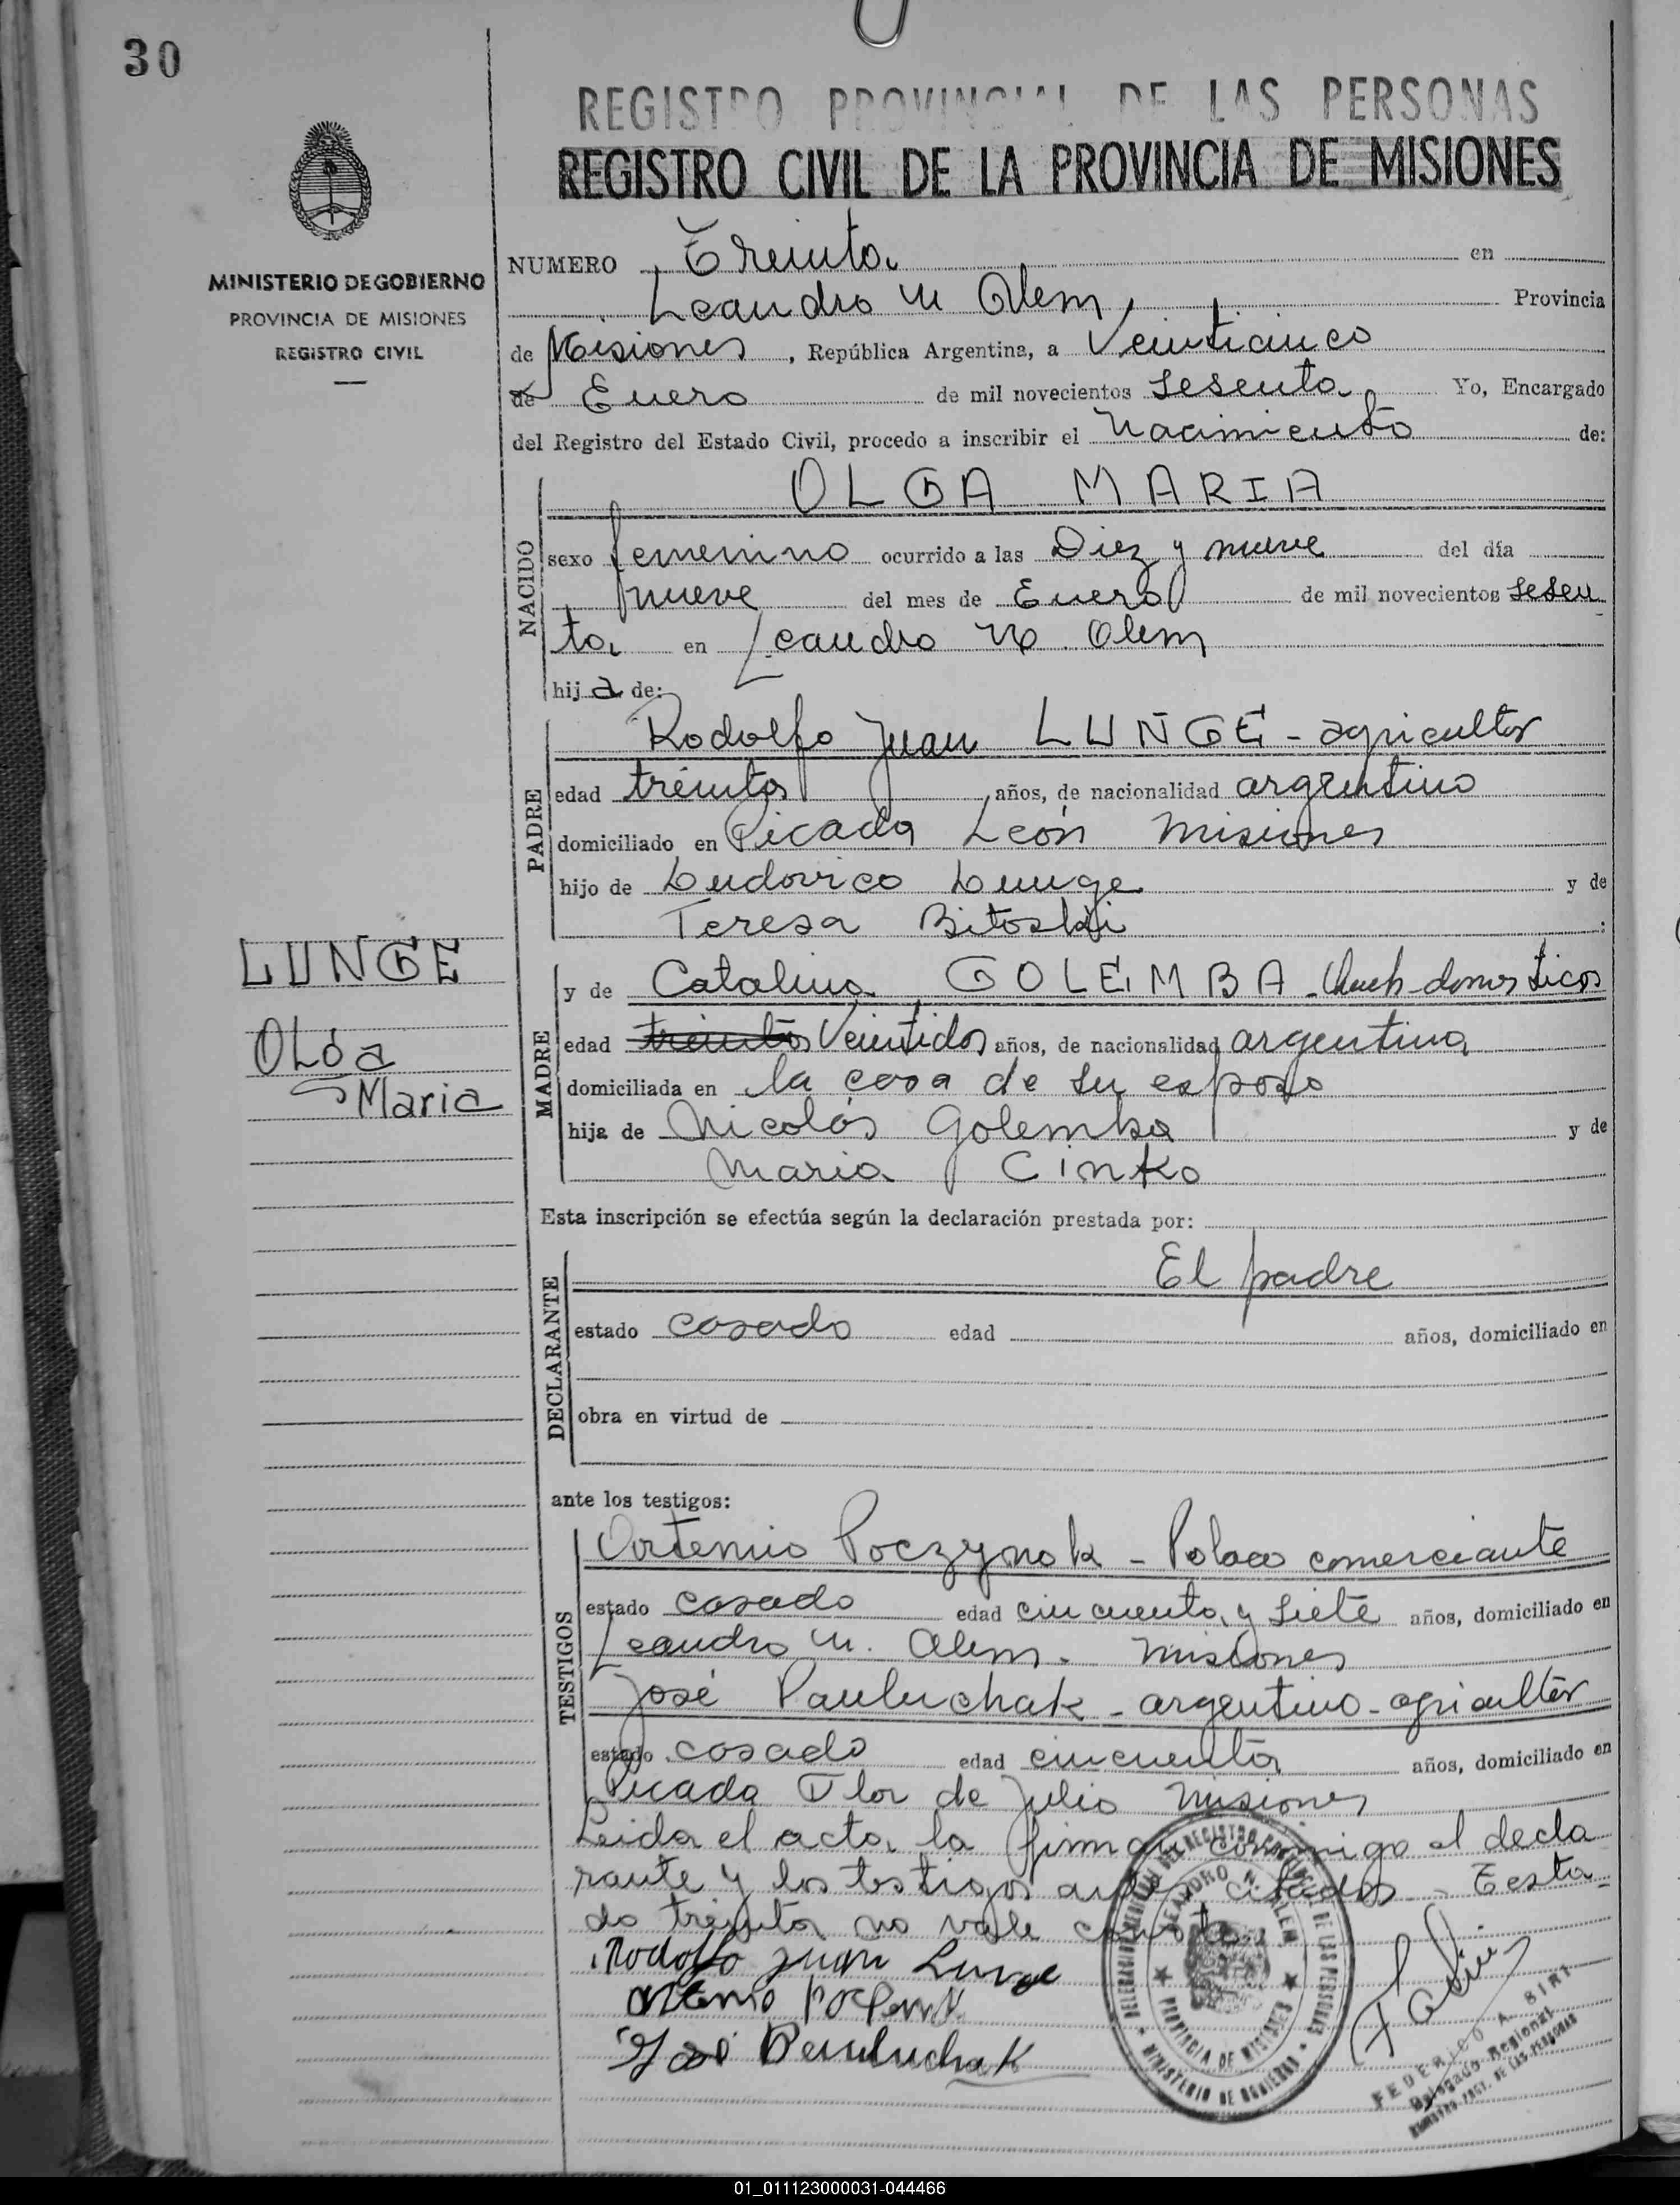 30
REGISTRO PROVINCIAL DE LAS PERSONAS
REGISTRO CIVIL DE LA PROVINCIA DE MISIONES
MINISTERIO DE GOBIERNO
PROVINCIA DE MISIONES
REGISTRO CIVIL
NUMERO Treinta en
Leandro N Alem Provincia
de Misiones, República Argentina, a Veinticinco
de Enero de mil novecientos sesenta Yo, Encargado
del Registro del Estado Civil, procedo a inscribir el Nacimiento de:
OLGA MARIA
NACIDO
sexo femenino ocurrido a las Diez y nueve del día
nueve del mes de Enero de mil novecientos sesen
ta en Leandro N Alem
hija de:
PADRE
Rodolfo Juan LUNGE - agricultor
edad treinta años, de nacionalidad argentino
domiciliado en Picada León Misiones
hijo de Ludovico Lunge y de
Teresa Bitoski :
LUNGE
Olga
Maria
MADRE
y de Catalina GOLEMBA - Queh-domesticos
edad treinta Veintidos años, de nacionalidad argentina
domiciliada en la casa de su esposo
hija de Nicolás Golemba y de
Maria Cinko
Esta inscripción se efectúa según la declaración prestada por:
DECLARANTE
El padre
estado casado edad años, domiciliado en
obra en virtud de
ante los testigos:
TESTIGOS
Artemio Poczynok - Polaco comerciante
estado casado edad cincuenta y siete años, domiciliado en
Leandro N. Alem. Misiones
José Pauluchak - argentino - agricultor
estado casado edad cincuenta años, domiciliado en
Picada Flor de Julio Misiones
Leida el acta la firman conmigo el decla
rante y los testigos antes citados - Testa
do treinta no vale conste.
Rodolfo Juan Lunge
José Pauluchak
DELEGACION REGIONAL DEL REGISTRO PROVINCIAL DE LAS PERSONAS
LEANDRO N. ALEM
PROVINCIA DE MISIONES
MINISTERIO DE GOBIERNO
FEDERICO A. SIRI
Delegado Regional
REGISTRO PROV. DE LAS PERSONAS
01_011123000031-044466